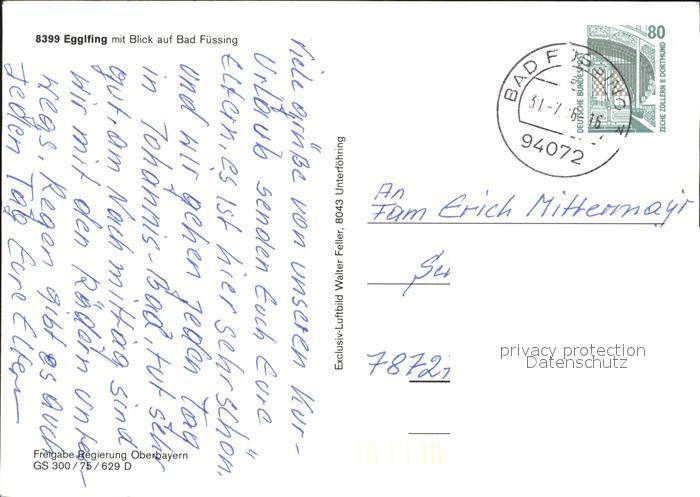 8399 Egglfing mit Blick auf Bad Füssing
Viele grüße von unseren Kur-
Urlaub senden Euch Eure
Eltern, es ist hier sehr schön,
und wir gehen jeden Tag
in Johannis-Bad, tut sehr
gut am Nachmittag sind
wir mit den Rädern unter-
wegs, Regen gibt es auch
jeden Tag Eure Eltern
Freigabe Regierung Oberbayern
GS 300/75/629 D
Exclusiv-Luftbild Walter Feller, 8043 Unterföhring
BAD FÜSSING
94072
80
DEUTSCHE BUNDESPOST
ZECHE ZOLLERN II DORTMUND
An
Fam Erich Mittermayr
7872
privacy protection
Datenschutz